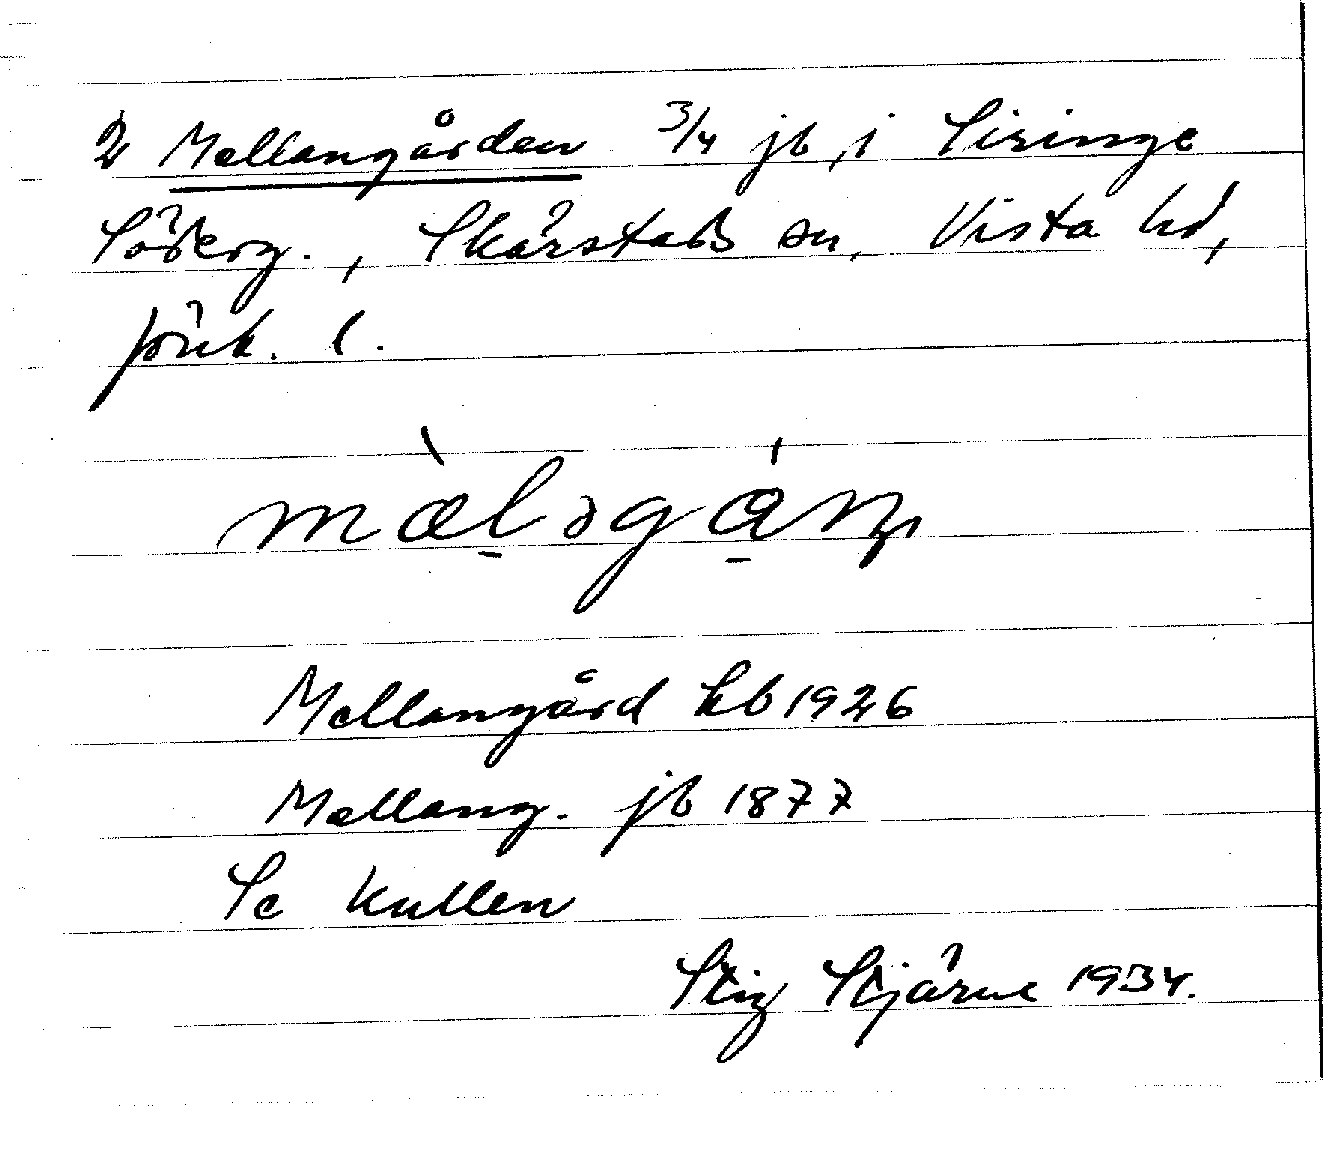 2 Mellangården 3/4 jb, i Siringe
Söderg., Skärstads sn, Vista hd,
Jönk. l.
mæ̀ləgáɳ
Mellangård kb 1926
Mellang. jb 1877
Se Kullen
Stig Stjärne 1934.